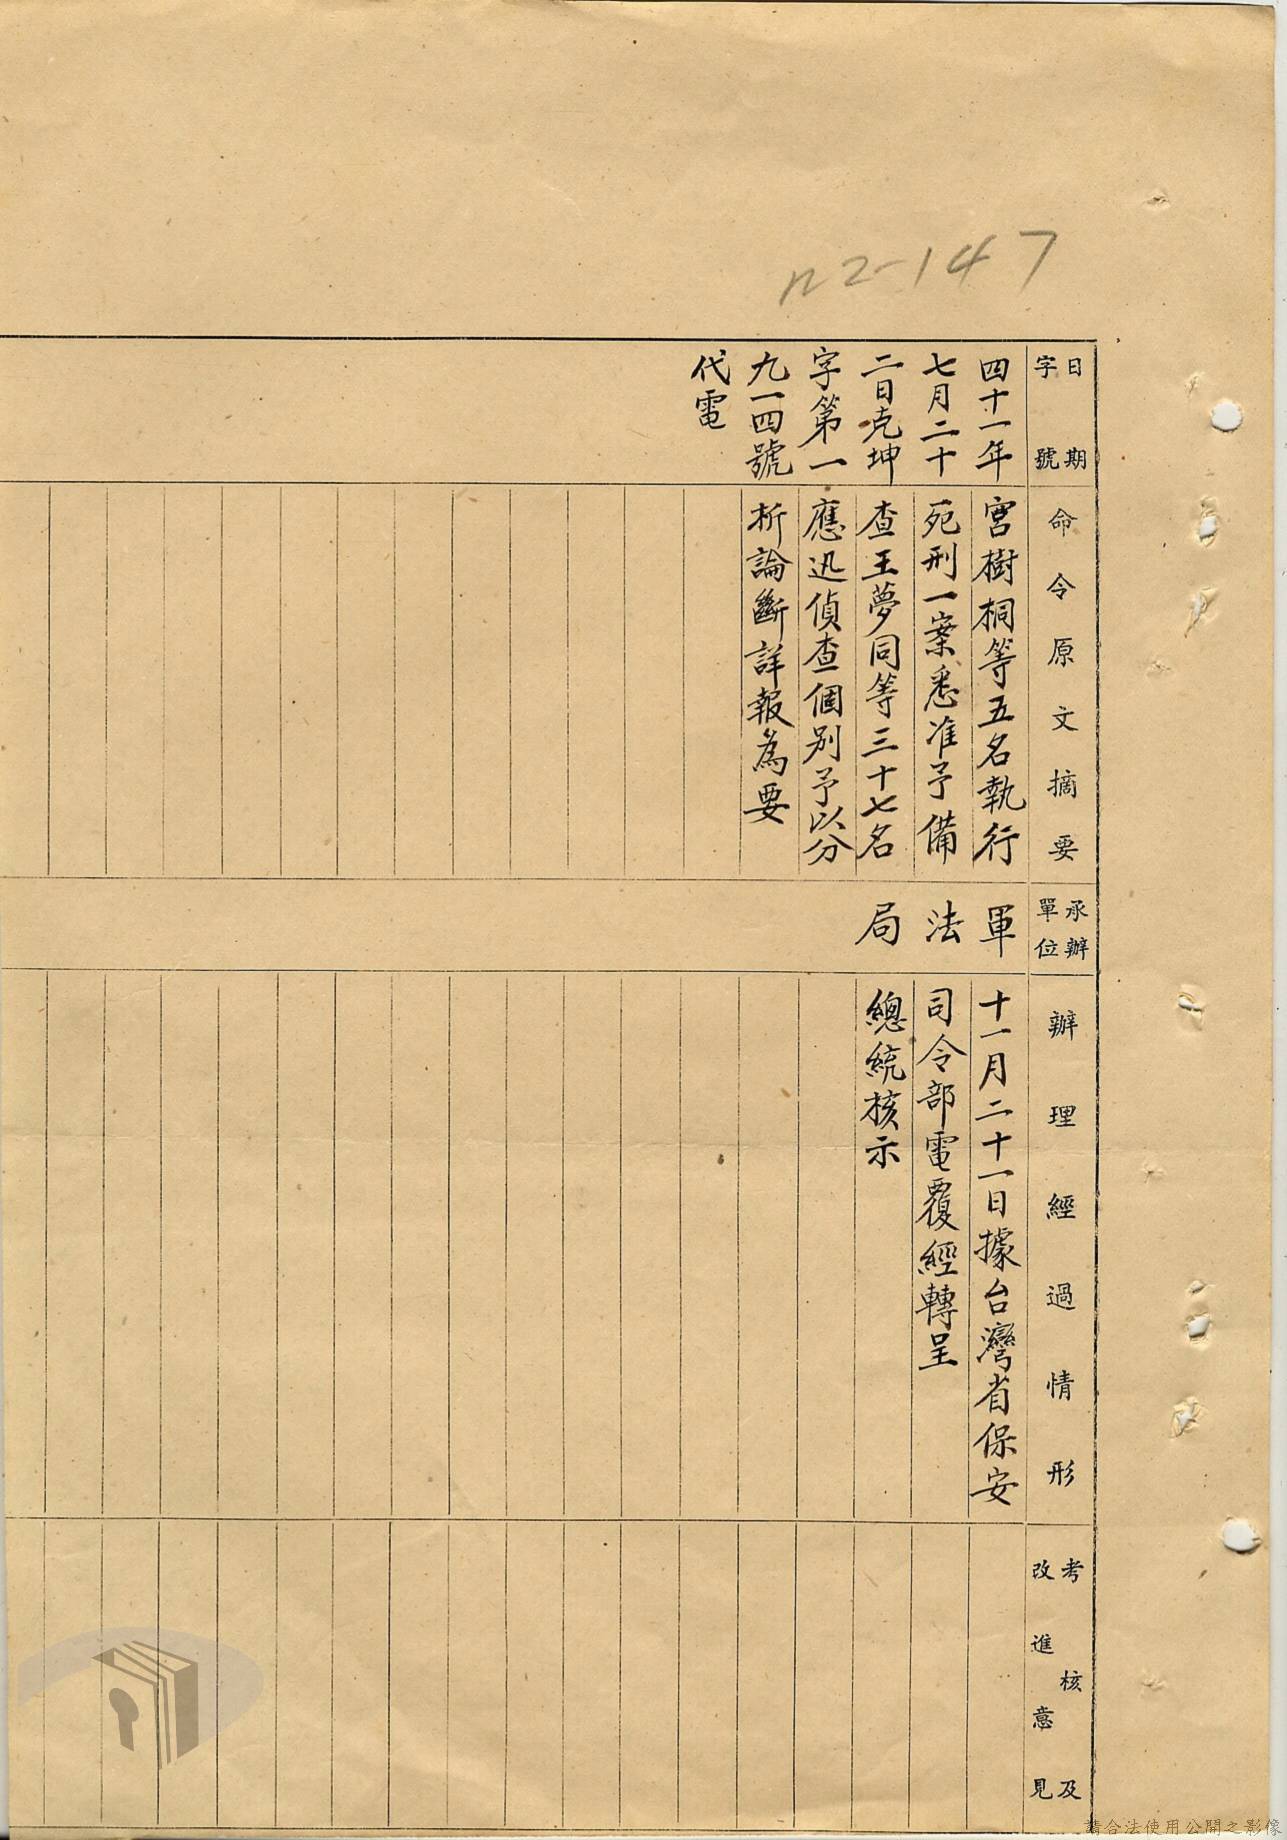 n2-147
日期
字號
命令原文摘要
承辦
單位
辦理經過情形
考核及
改進意見
四十一年
七月二十
二日克坤
字第一
九一四號
代電
宮樹桐等五名執行
死刑一案悉准予備
查王夢同等三十七名
應迅偵查個別予以分
析論斷詳報為要
軍法局
十一月二十一日據台灣省保安
司令部電覆經轉呈
總統核示
請合法使用公開之影像